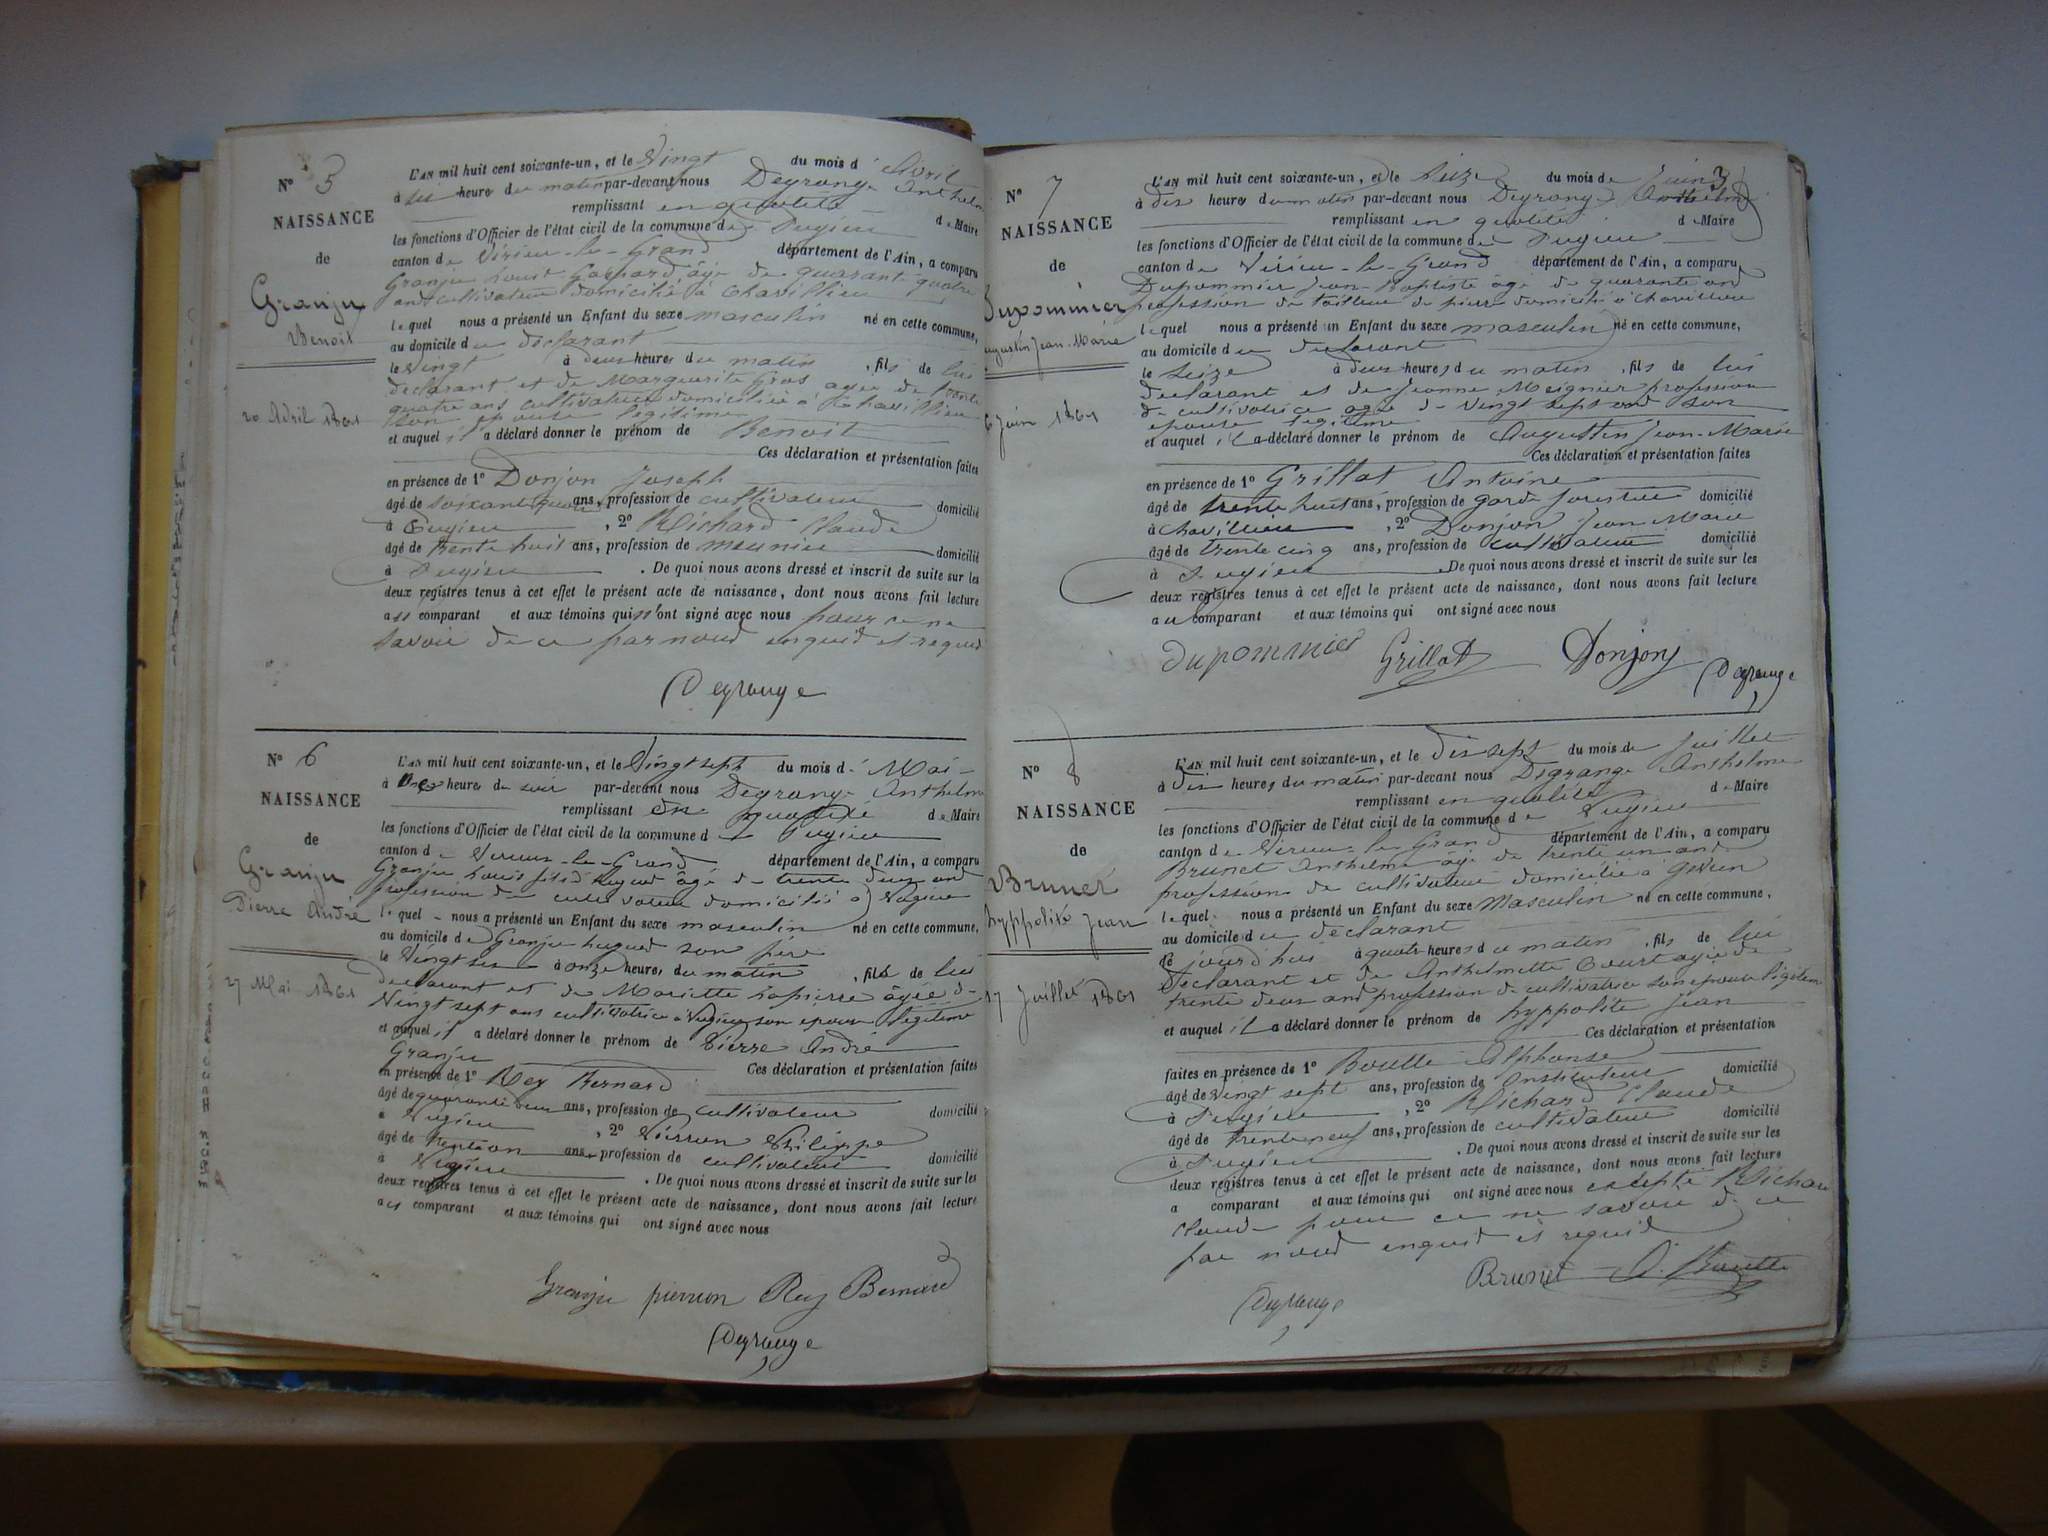 N° 5
NAISSANCE
de
Granju
Benoit
20 Avril 1861
L'AN mil huit cent soixante-un, et le Vingt du mois d' Avril
à six heures du matin par-devant nous Degrange Anthelme
remplissant en qualité de Maire
les fonctions d'Officier de l'état civil de la commune de Pugieu
canton de Virieu-le-Grand département de l'Ain, a comparu
Granju Louis Gaspard âgé de quarante quatre
ans cultivateur domicilié à Chavillieu
lequel nous a présenté un Enfant du sexe masculin né en cette commune,
au domicile du déclarant
le Vingt à deux heures du matin, fils de lui
déclarant et de Marguerite Gros agée de trente
quatre ans cultivatrice domiciliée à Chavillieu
son épouse légitime
et auquel il a déclaré donner le prénom de Benoit
Ces déclaration et présentation faites
en présence de 1° Donjon Joseph
âgé de soixante quatre ans, profession de cultivateur domicilié
à Pugieu, 2° Richard Claude
âgé de trente huit ans, profession de meunier domicilié
à Pugieu. De quoi nous avons dressé et inscrit de suite sur les
deux registres tenus à cet effet le présent acte de naissance, dont nous avons fait lecture
aux comparant et aux témoins qui n'ont signé avec nous pour ce ne
savoir de ce par nous enquis et requis
Degrange
N° 6
NAISSANCE
de
Granju
Pierre André
27 Mai 1861
L'AN mil huit cent soixante-un, et le Vingt sept du mois de Mai
à heures du soir par-devant nous Degrange Anthelme
remplissant en qualité de Maire
les fonctions d'Officier de l'état civil de la commune d Pugieu
canton de Virieu-le-Grand département de l'Ain, a comparu
Granju Louis fils d'hugues âgé de trente deux ans
profession de cultivateur domicilié à Pugieu
lequel nous a présenté un Enfant du sexe masculin né en cette commune,
au domicile de Granju hugues son père
le Vingt six à onze heures du matin, fils de lui
déclarant et de Mariette Lapierre âgée de
Vingt sept ans cultivatrice à Pugieu son epouse légitime
et auquel il a déclaré donner le prénom de Pierre André
Granju Ces déclaration et présentation faites
en présence de 1° Rey Bernard
âgé de quarante deux ans, profession de cultivateur domicilié
à Pugieu, 2° Pierron Philippe
âgé de trente un ans, profession de cultivateur domicilié
à Pugieu. De quoi nous avons dressé et inscrit de suite sur les
deux registres tenus à cet effet le présent acte de naissance, dont nous avons fait lecture
aux comparant et aux témoins qui ont signé avec nous
Granju pierron Rey Bernard
Degrange
3
N° 7
NAISSANCE
de
Dupommier
Augustin Jean-Marie
6 Juin 1861
L'AN mil huit cent soixante-un, et le Seize du mois de Juin
à dix heures du matin par-devant nous Degrange Anthelme
remplissant en qualité de Maire
les fonctions d'Officier de l'état civil de la commune de Pugieu
canton de Virieu-le-Grand département de l'Ain, a comparu
Dupommier Jean-Baptiste âgé de quarante ans
profession de tailleur de pierre domicilié à Chavillieu
lequel nous a présenté un Enfant du sexe masculin né en cette commune,
au domicile du déclarant
le Seize à deux heures du matin, fils de lui
déclarant et de Jeanne Meignier profession
de cultivatrice agée de Vingt sept ans son
epouse légitime
et auquel il a déclaré donner le prénom de Augustin Jean-Marie
Ces déclaration et présentation faites
en présence de 1° Grillat Antoine
âgé de trente huit ans, profession de garde forestier domicilié
à Chavillieu, 2° Donjon Jean Marie
âgé de trente cinq ans, profession de cultivateur domicilié
à Pugieu. De quoi nous avons dressé et inscrit de suite sur les
deux registres tenus à cet effet le présent acte de naissance, dont nous avons fait lecture
au comparant et aux témoins qui ont signé avec nous
dupommier Grillat Donjon Degrange
N° 8
NAISSANCE
de
Brunet
hyppolite Jean
17 Juillet 1861
L'AN mil huit cent soixante-un, et le dix sept du mois de Juillet
à dix heures du matin par-devant nous Degrange Anthelme
remplissant en qualité de Maire
les fonctions d'Officier de l'état civil de la commune de Pugieu
canton de Virieu-le-Grand département de l'Ain, a comparu
Brunet Anthelme âgé de trente un ans
profession de cultivateur domicilié à
lequel nous a présenté un Enfant du sexe Masculin né en cette commune,
au domicile du déclarant
jourd'hui à quatre heures du matin, fils de lui
déclarant et de Anthelmette agée de
trente deux ans profession de cultivatrice son epouse légitime
et auquel il a déclaré donner le prénom de hyppolite Jean
Ces déclaration et présentation
faites en présence de 1° Alphonse
âgé de vingt sept ans, profession de Instituteur domicilié
à Pugieu, 2° Richard Claude
âgé de trente neuf ans, profession de cultivateur domicilié
à Pugieu. De quoi nous avons dressé et inscrit de suite sur les
deux registres tenus à cet effet le présent acte de naissance, dont nous avons fait lecture
a comparant et aux témoins qui ont signé avec nous excepté Richard
Claude pour ce ne savoir de ce
par nous enquis et requis
Brunet
Degrange